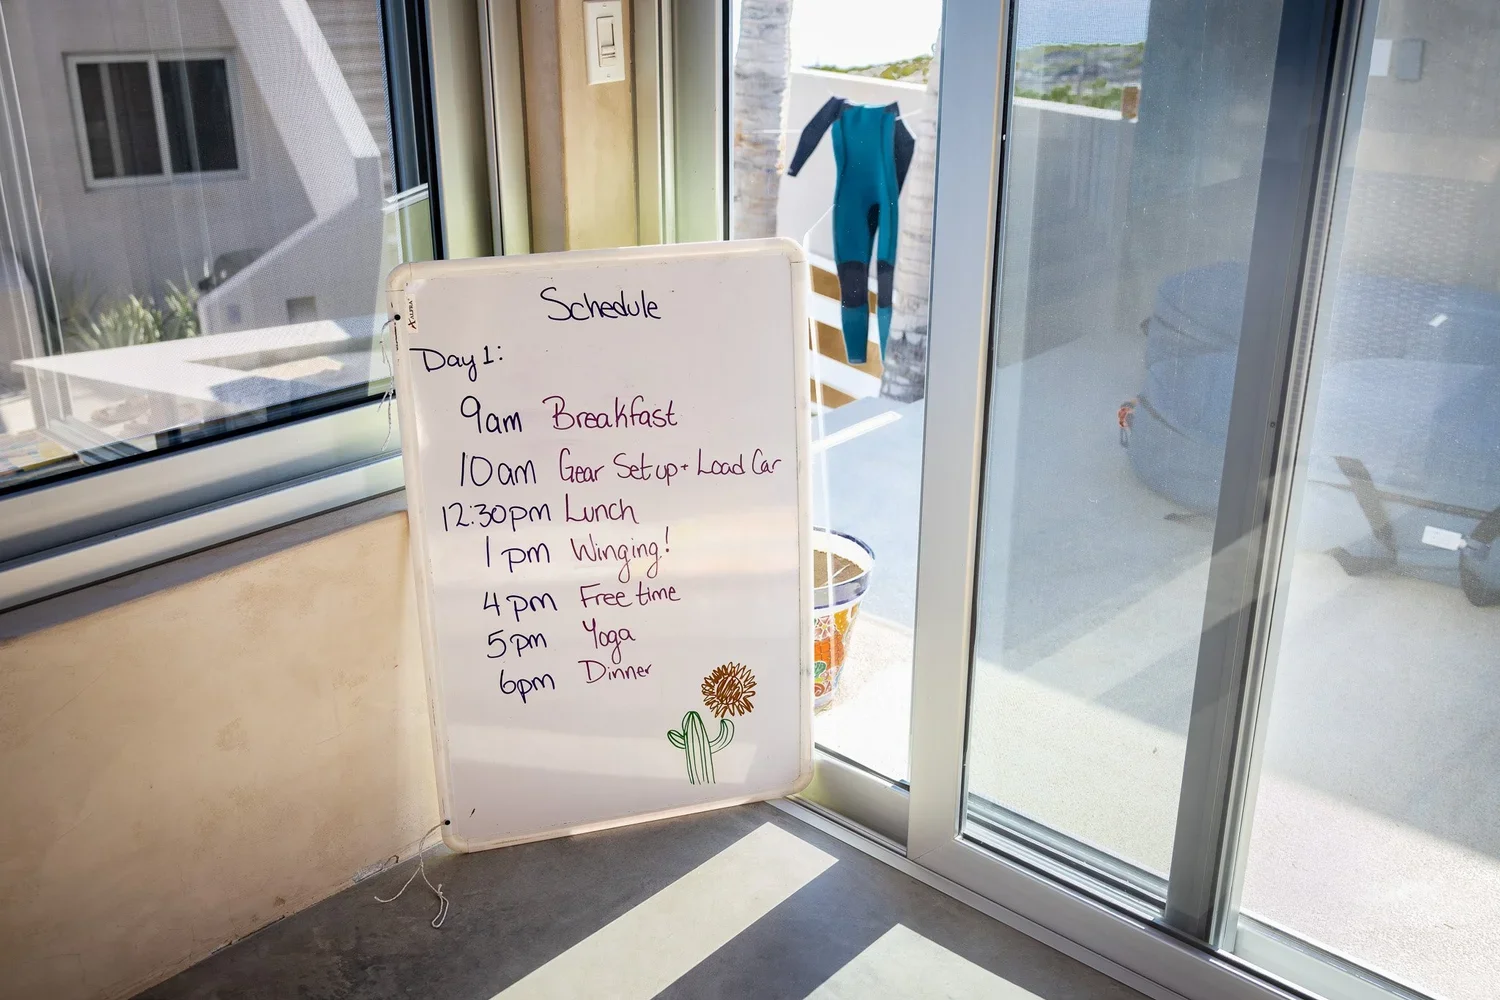 Schedule
Day 1:
9am Breakfast
10am Gear Set up + Load Car
12:30pm Lunch
1pm Winging!
4pm Free time
5pm Yoga
6pm Dinner